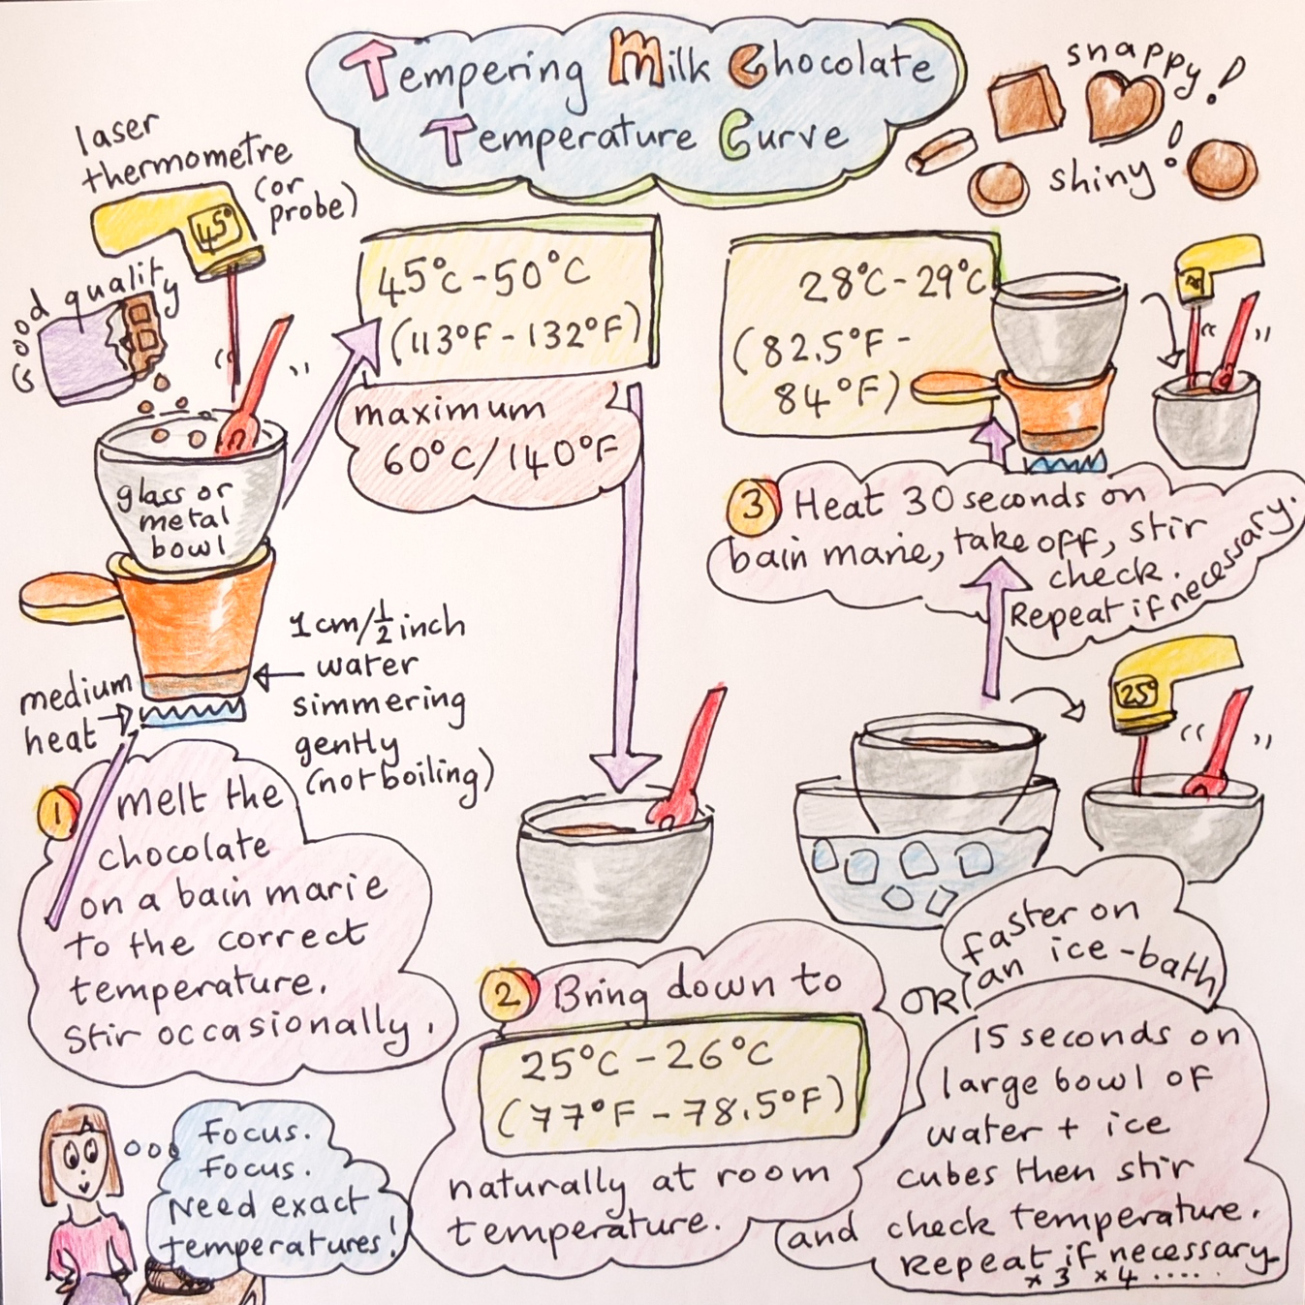 Tempering Milk Chocolate
Temperature Curve
snappy!
shiny!
laser
thermometre
(or
probe)
45°
Good quality
glass or
metal
bowl
medium
heat
1cm/½ inch
water
simmering
gently
(not boiling)
1 melt the
chocolate
on a bain marie
to the correct
temperature.
Stir occasionally.
45°C-50°C
(113°F-132°F)
maximum
60°C/140°F
2 Bring down to
25°C-26°C
(77°F-78.5°F)
naturally at room
temperature.
OR
faster on
an ice-bath
15 seconds on
large bowl of
water + ice
cubes then stir
and check temperature.
Repeat if necessary
x3 x4 .....
25°
3 Heat 30 seconds on
bain marie, take off, stir
check.
Repeat if necessary.
28°C-29°C
(82.5°F-
84°F)
Focus.
Focus.
Need exact
temperatures!